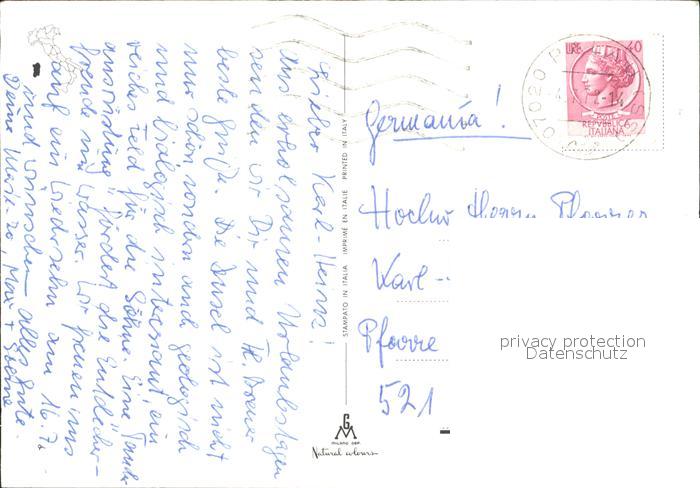 Lieber Karl-Heinz!
Aus erholsamen Urlaubstagen
senden wir Dir und H.
beste Grüße. Die Insel ist nicht
nur schön sondern auch geologisch
und biologisch interessant, ein
reiches Feld für die Söhne. Eine Taucher-
ausrüstung fördert die Entdecker-
freude im Wasser. Wir freuen uns
auf ein Wiedersehn am 16.7.
und wünschen alles Gute.
Deine Max +
STAMPATO IN ITALIA IMPRIMÉ EN ITALIE PRINTED IN ITALY
G
M
MILANO DEP.
Natural colours
LIRE 40
POSTE
REPVBBLICA
ITALIANA
07020 P
Germania!
Hochw Herrn Pfarrer
Karl-
Pfarre
521
privacy protection
Datenschutz